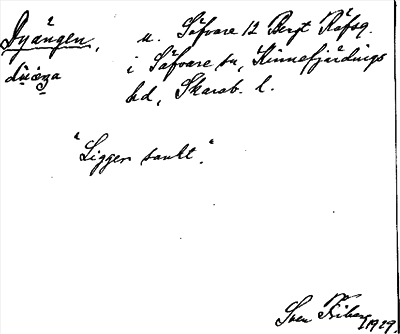 Dyängen, u. Säfvare 12 Bengt Räfsg.
i Säfvare sn, Kinnefjärdings
hd, Skarab. l.
"Ligger sankt".
Sven Friberg 1929